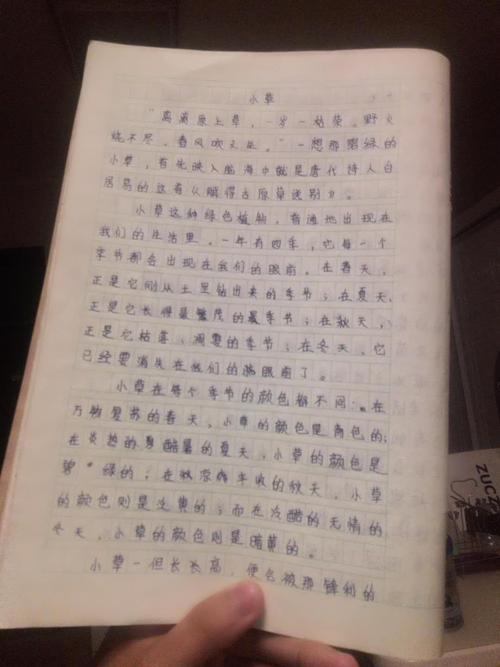 小草
“离离原上草，一岁一枯荣。野火
烧不尽，春风吹又生。”一想那碧绿的
小草，首先映入脑海中就是唐代诗人白
居易的这首《赋得古原草送别》。
小草这种绿色植物，普遍地出现在
我们的生活里。一年有四季，它每一个
季节都会出现在我们的眼前。在春天，
正是它刚从土里钻出来的季节；在夏天，
正是它长得最繁茂的季节；在秋天，
正是它枯落、凋零的季节；在冬天，它
已经要消失在我们的眼前了。
小草在每个季节的颜色都不同：在
万物复苏的春天，小草的颜色是角色的；
在炎热的酷暑的夏天，小草的颜色是
碧绿的；在秋凉丰收的秋天，小草
的颜色则是泛黄的；而在冷酷的无情的
冬天，小草的颜色则是暗黄的。
小草一但长长高，便会被那锋利的
ZUCZ